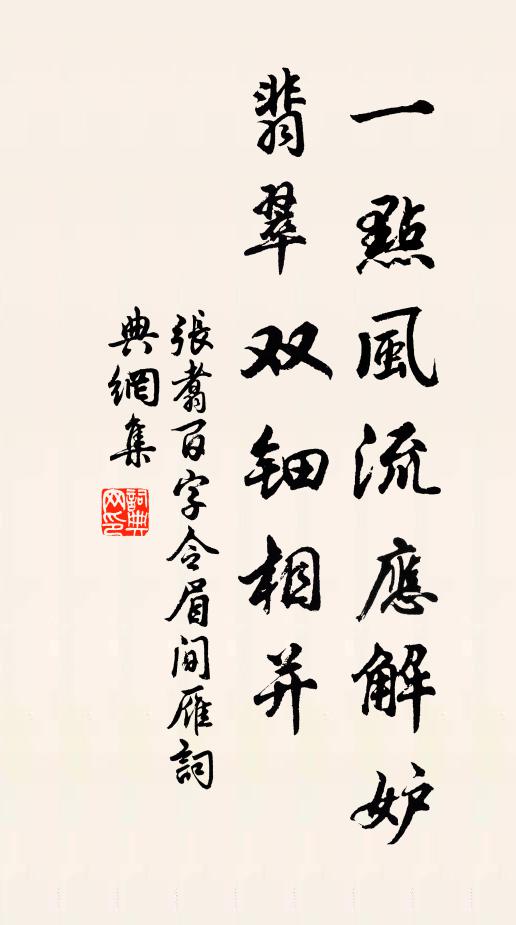 一點風流應解妒
翡翠双鈿相并
張翥百字令眉間雁詞
典網集
詞典
网印